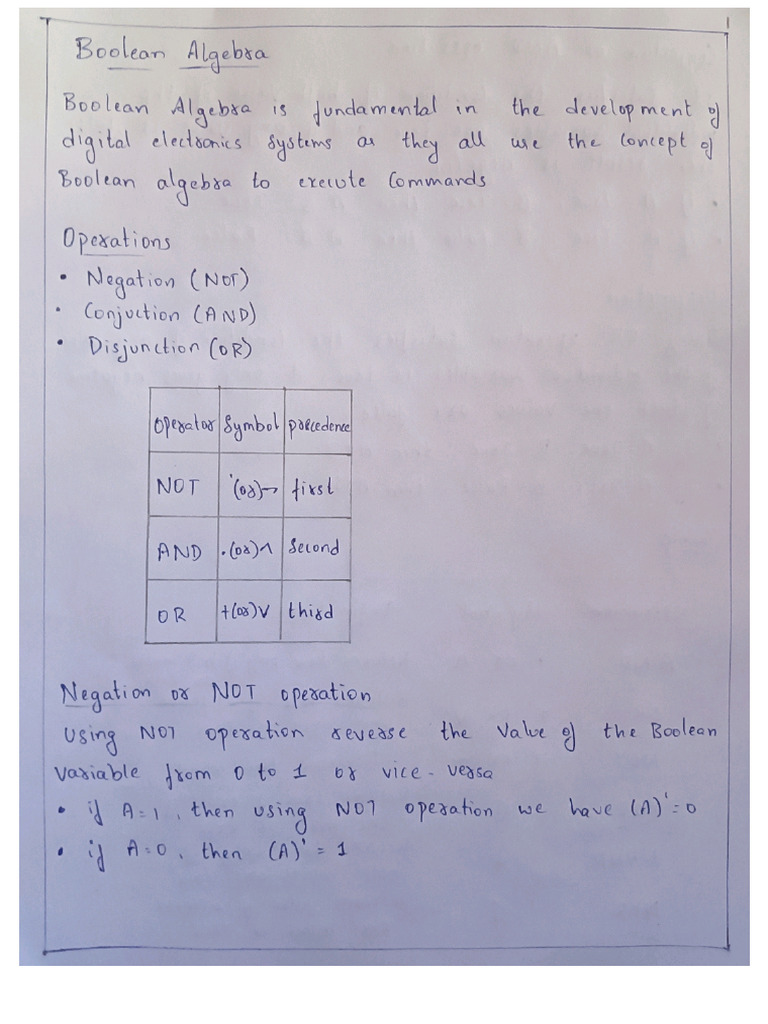 1
Boolean Algebra
Boolean Algebra is fundamental in the development of
digital electronics systems as they all use the concept of
Boolean algebra to execute Commands
Operations
• Negation (NOT)
• Conjuction (AND)
• Disjunction (OR)
Operator Symbol precedence
NOT '(or)¬ first
AND .(or)∧ Second
OR +(or)∨ third
Negation or NOT operation
Using NOT operation reverse the Value of the Boolean
Variable from 0 to 1 or vice-versa
• if A=1, then using NOT operation we have (A)'=0
• if A=0, then (A)'=1